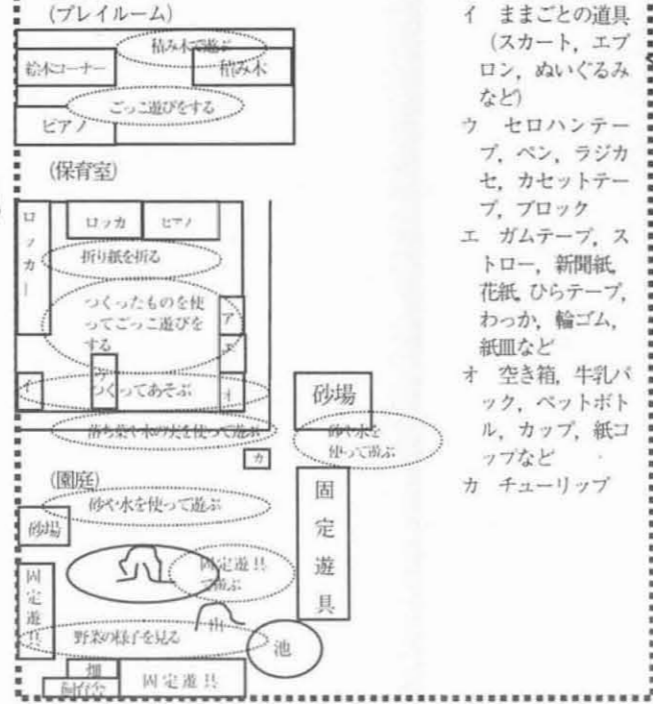 (プレイルーム)
積み木で遊ぶ
絵本コーナー
積み木
ごっこ遊びをする
ピアノ
(保育室)
ロッカー
ロッカ
ピアノ
折り紙を折る
つくったものを使
ってごっこ遊びを
する
ア
エ
イ
ウ
つくってあそぶ
オ
砂場
落ち葉や木の実を使って遊ぶ
砂や水を
使って遊ぶ
カ
(園庭)
砂や水を使って遊ぶ
砂場
固定遊具
固定遊具
で遊ぶ
固定遊具
山
野菜の様子を見る
池
畑
飼育舎
固定遊具
イ ままごとの道具
(スカート，エプ
ロン，ぬいぐるみ
など)
ウ セロハンテー
プ，ペン，ラジカ
セ，カセットテー
プ，ブロック
エ ガムテープ，ス
トロー，新聞紙，
花紙，ひらテープ，
わっか，輪ゴム，
紙皿など
オ 空き箱，牛乳パ
ック，ペットボト
ル，カップ，紙コ
ップなど
カ チューリップ